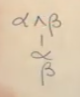 α∧β
|
α
β